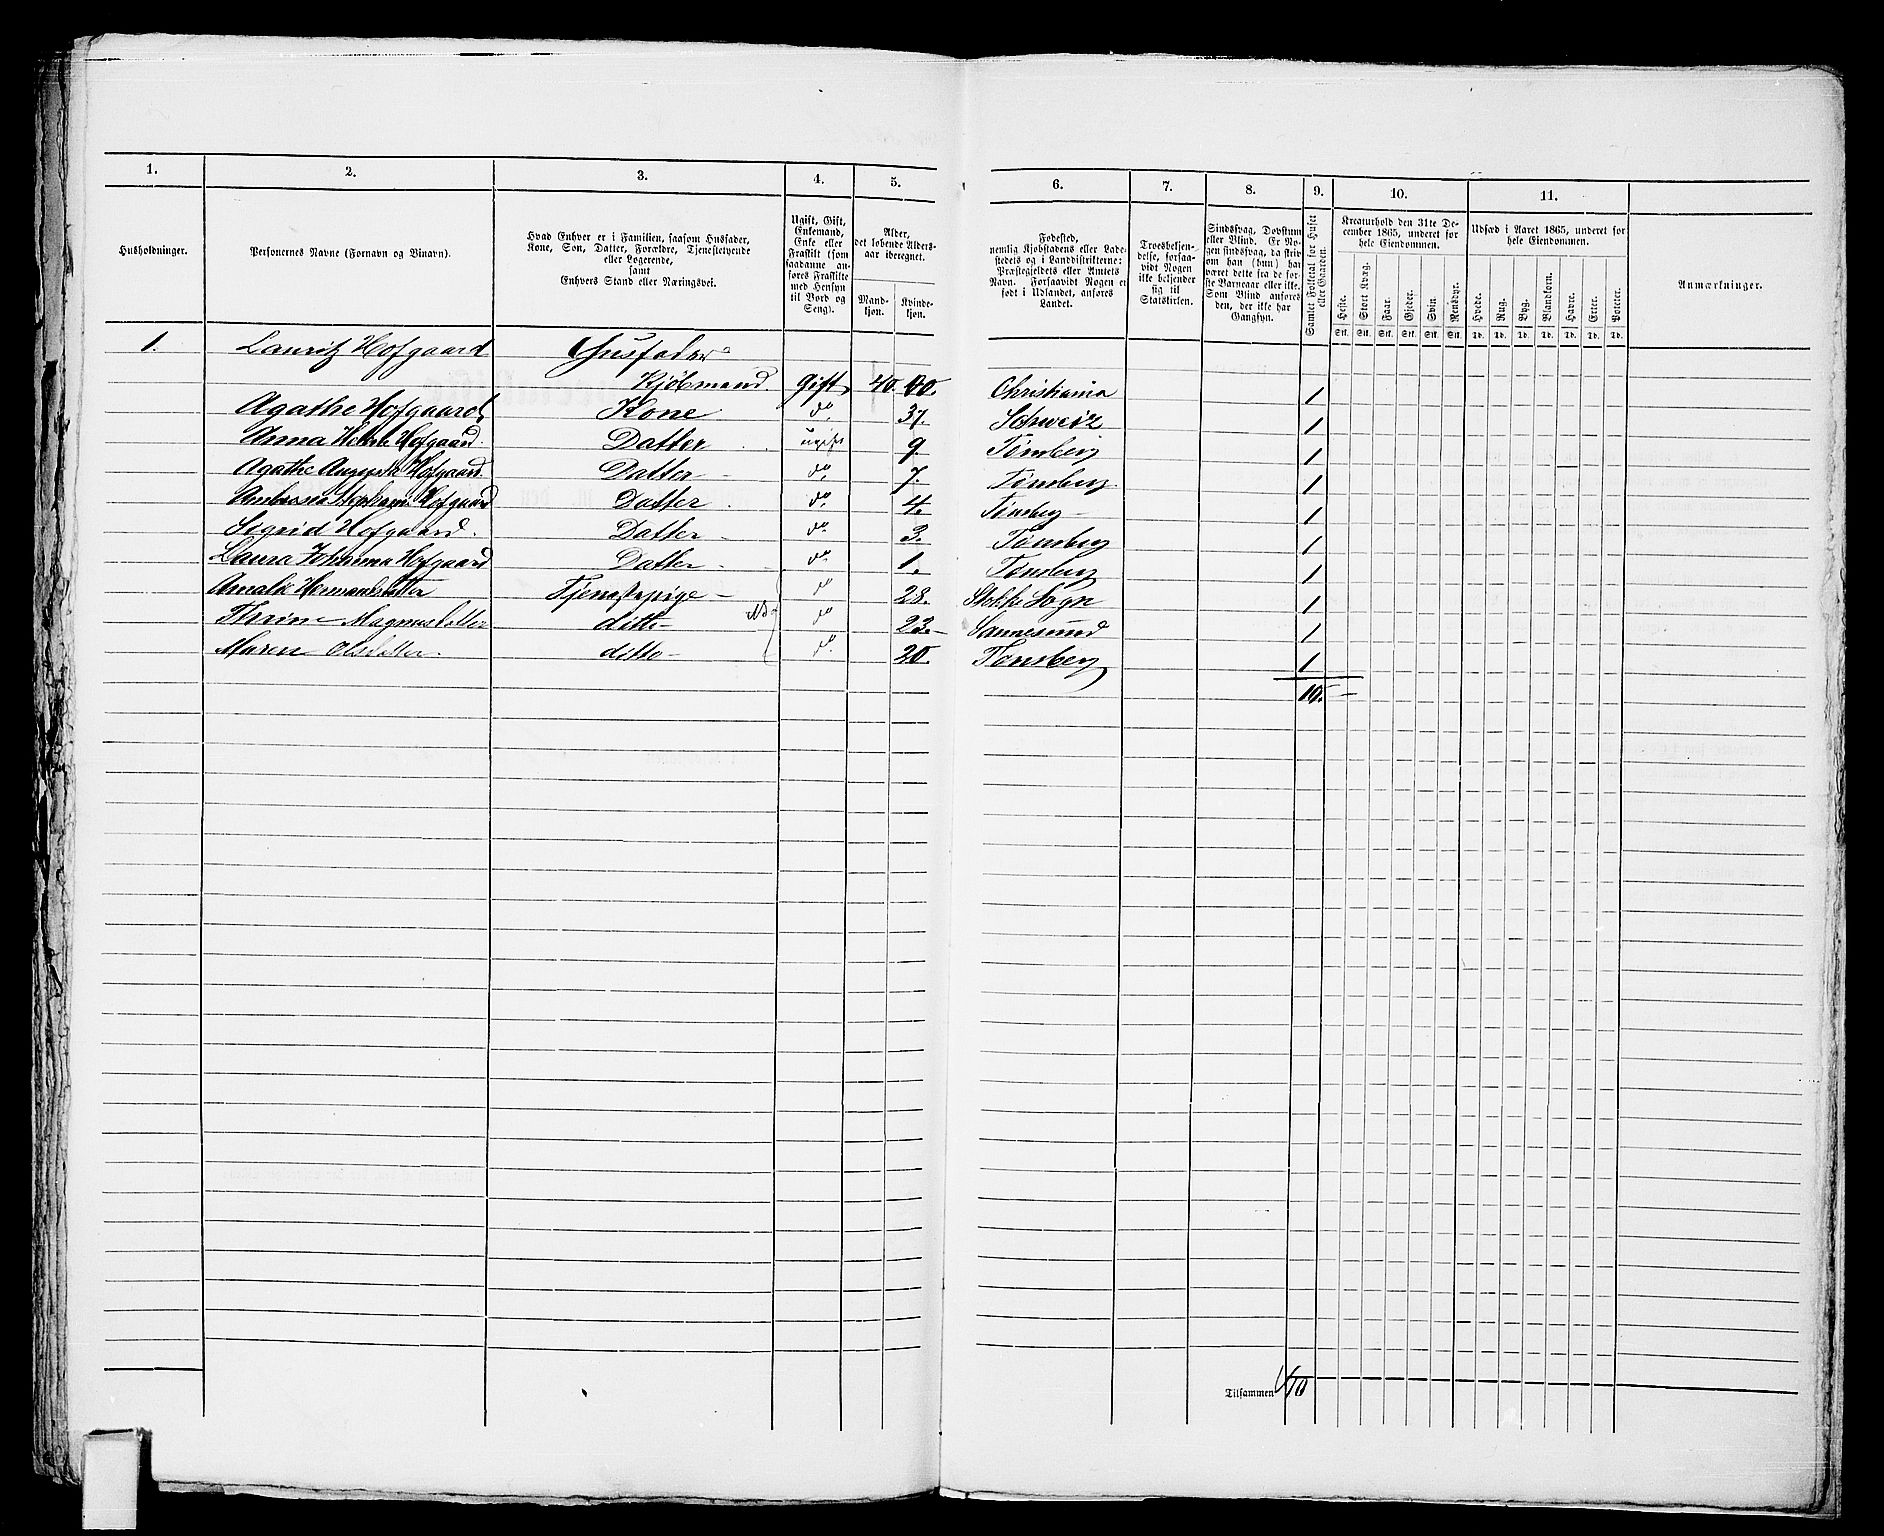 1. 2. 3. 4. 5. 6. 7. 8. 9. 10. 11.
Husholdninger.
Personernes Navne (Fornavn og Binavn).
Hvad Enhver er i Familien, saasom Husfader,
Kone, Søn, Datter, Forældre, Tjenestetyende
eller Logerende,
samt
Enhvers Stand eller Næringsvei.
Ugift, Gift,
Enkemand,
Enke eller
Fraskilt (som
saadanne an-
føres Fraskilte
med Hensyn
til Bord og
Seng).
Alder,
det løbende Alders-
aar iberegnet.
Mand-
kjøn.
Kvinde-
kjøn.
Fødested,
nemlig Kjøbstadens eller Lade-
stedets og i Landdistrikterne:
Præstegjeldets eller Amtets
Navn. Forsaavidt Nogen er
født i Udlandet, anføres
Landet.
Troesbekjen-
delse, forsaa-
vidt Nogen
ikke bekjender
sig til
Statskirken.
Sindssvag, Døvstum
eller Blind. Er No-
gen sindssvag, da skriv
om han (hun) har
været dette fra de før-
ste Barneaar eller ikke.
Som Blind anføres
den, der ikke har
Gangsyn.
Samlet Folketal for Huset
eller Gaarden.
Kreaturhold den 31te De-
cember 1865, underet for
hele Eiendommen.
Heste. Stort Kvæg. Faar. Gjeder. Svin. Rensdyr.
Stk. Stk. Stk. Stk. Stk. Stk.
Udsæd i Aaret 1865, underet for
hele Eiendommen.
Hvede. Rug. Byg. Blandkorn. Havre. Erter. Poteter.
Td. Td. Td. Td. Td. Td. Td.
Anmærkninger.
1. Lauritz Hofgaard Husfader
Kjøbmand gift 40. Christiania 1
Agathe Hofgaard Kone do 37. Schweiz 1
Anna Helene Hofgaard. Datter ugift 9. Tønsberg 1
Agathe Augusta Hofgaard. Datter do 7. Tønsberg. 1
Hofgaard Datter do 4. Tønsberg 1
Sigrid Hofgaard. Datter do 3. Tønsberg 1
Laura Johanna Hofgaard Datter do 1. Tønsberg 1
Amalie Hermansdatter Tjenestepige do 28. Stokke Sogn 1
Thrine Magnusdatter ditto do 23. Sannesund 1
Maren Olsdatter. ditto do 20. Tønsberg 1
10.
Tilsammen 10